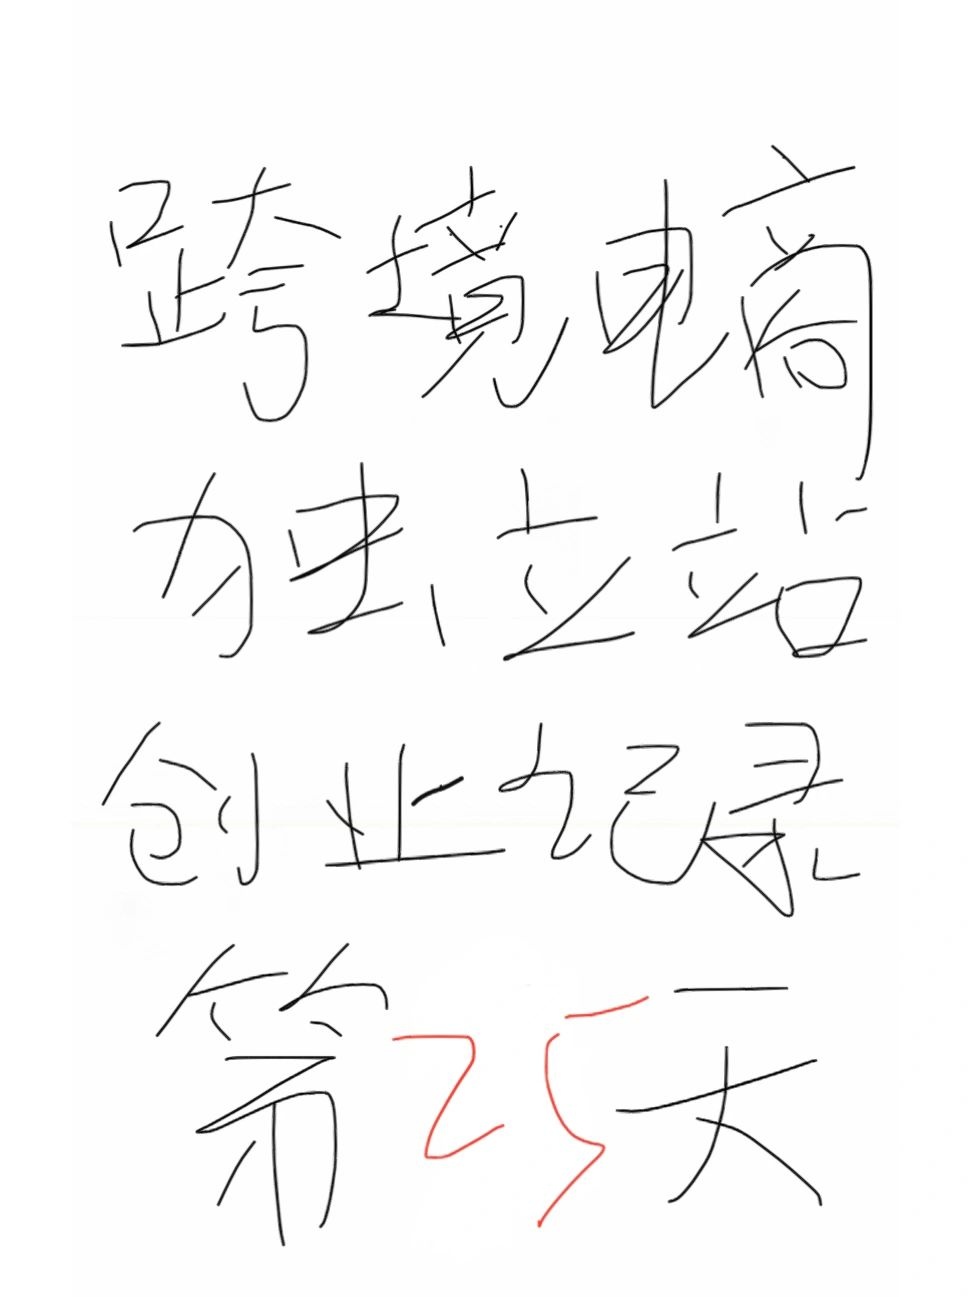 跨境电商
独立站
创业记录
第25天